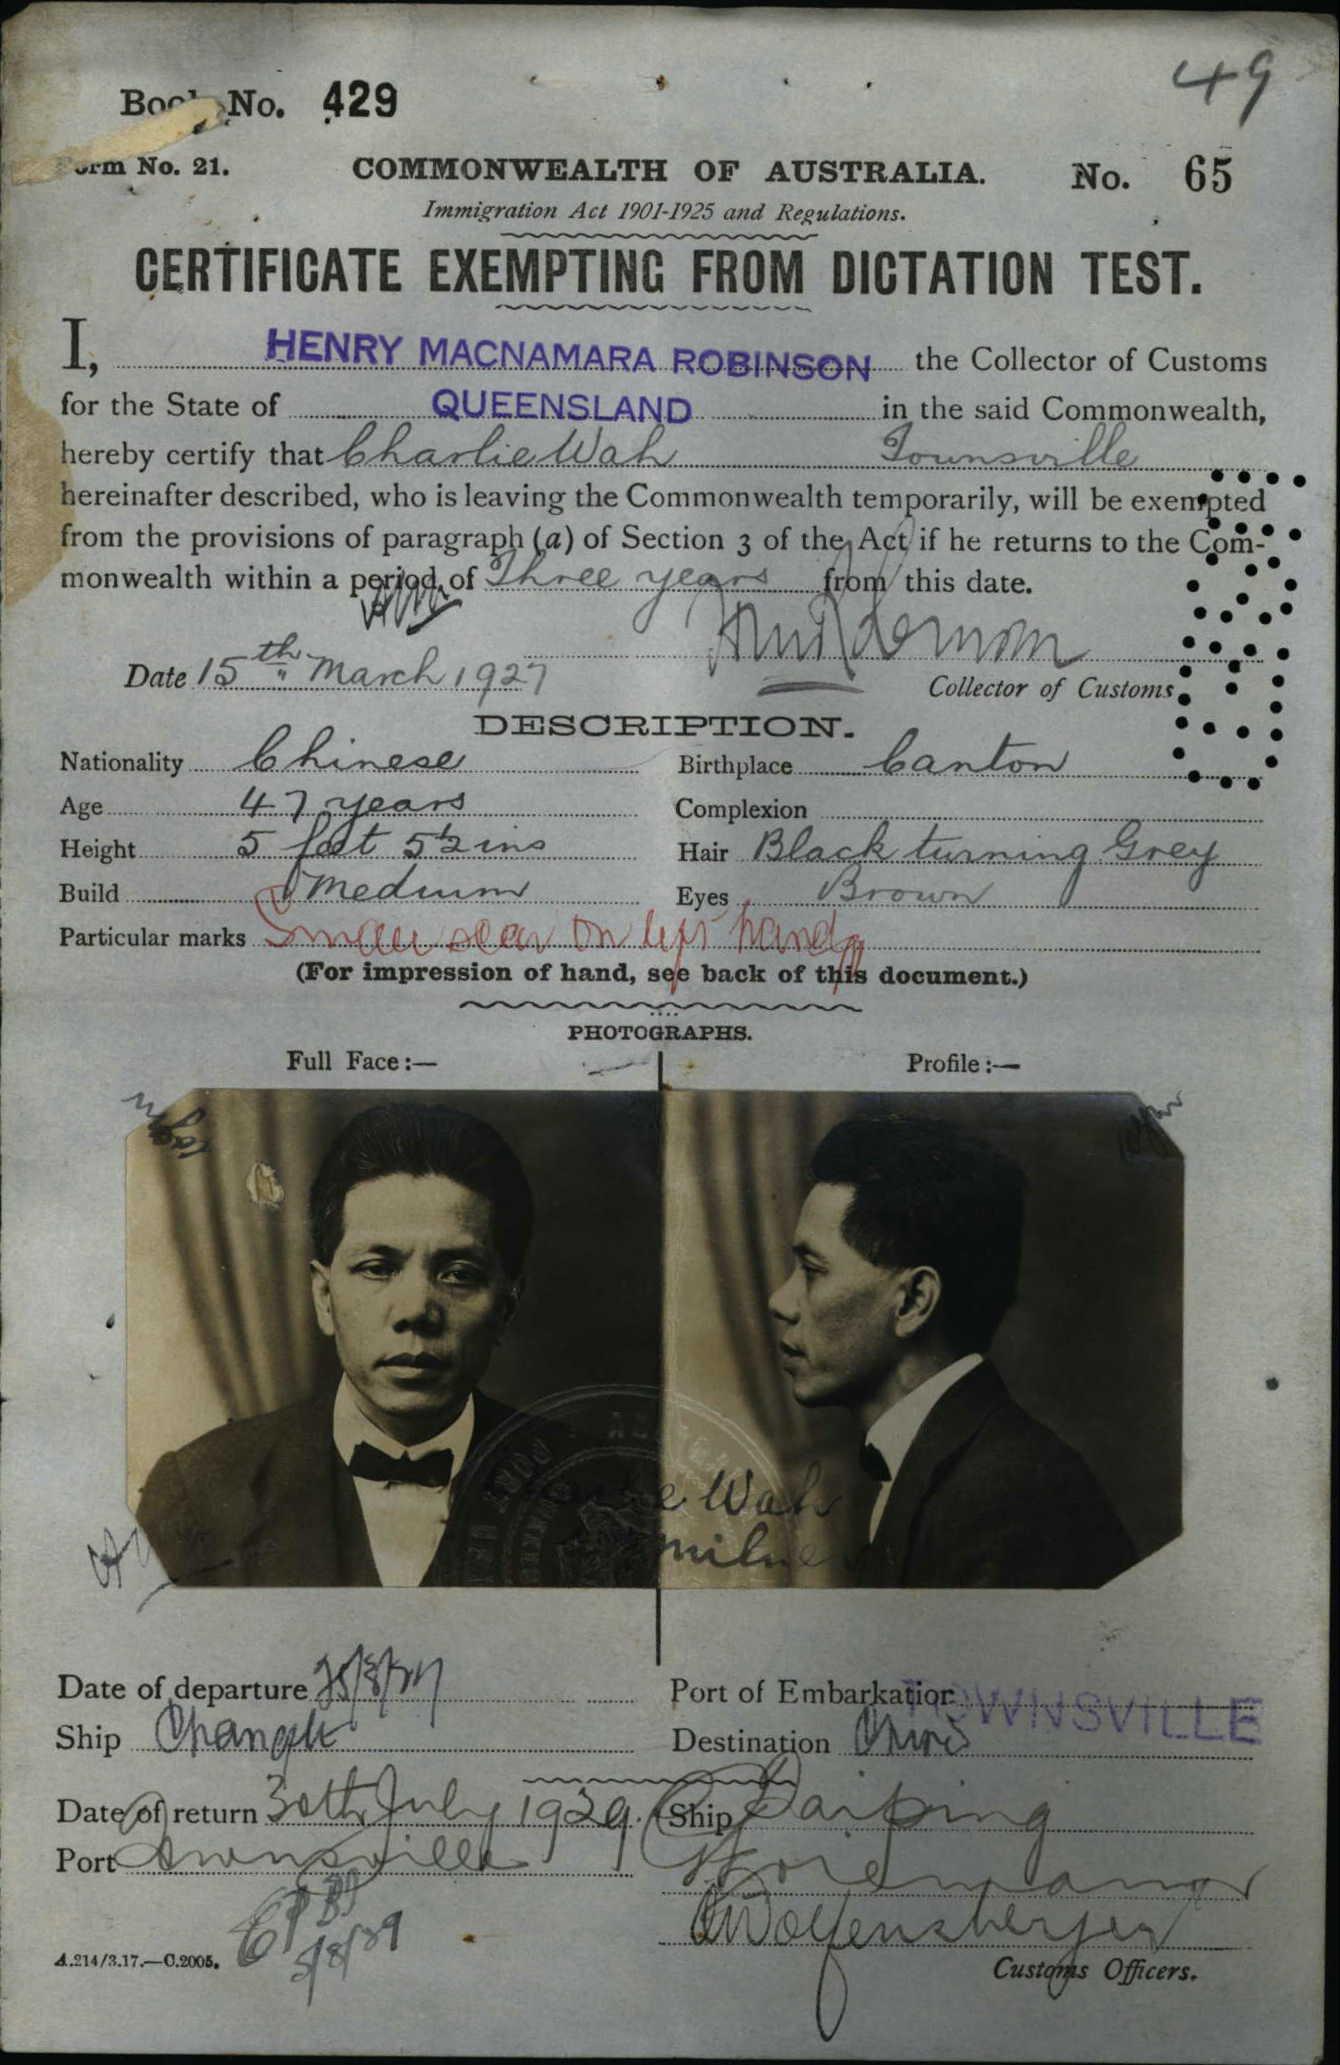 49
Book No. 429
Form No. 21. COMMONWEALTH OF AUSTRALIA. No. 65
Immigration Act 1901-1925 and Regulations.
CERTIFICATE EXEMPTING FROM DICTATION TEST.
I, HENRY MACNAMARA ROBINSON the Collector of Customs
for the State of QUEENSLAND in the said Commonwealth,
hereby certify that Charlie Wah Townsville
hereinafter described, who is leaving the Commonwealth temporarily, will be exempted
from the provisions of paragraph (a) of Section 3 of the Act if he returns to the Com-
monwealth within a period of Three years from this date.
Date 15th March 1927
Collector of Customs
DESCRIPTION.
Nationality Chinese Birthplace Canton
Age 47 years Complexion
Height 5 feet 5½ ins Hair Black turning Grey
Build Medium Eyes Brown
Particular marks Small scar on left hand
(For impression of hand, see back of this document.)
PHOTOGRAPHS.
Full Face:— Profile:—
Wah
Milne
Date of departure Port of Embarkation TOWNSVILLE
Ship Changte Destination China
Date of return 30th July 1929. Ship Taiping
Port Townsville
5/8/29
A.214/3.17.—C.2005.
Customs Officers.